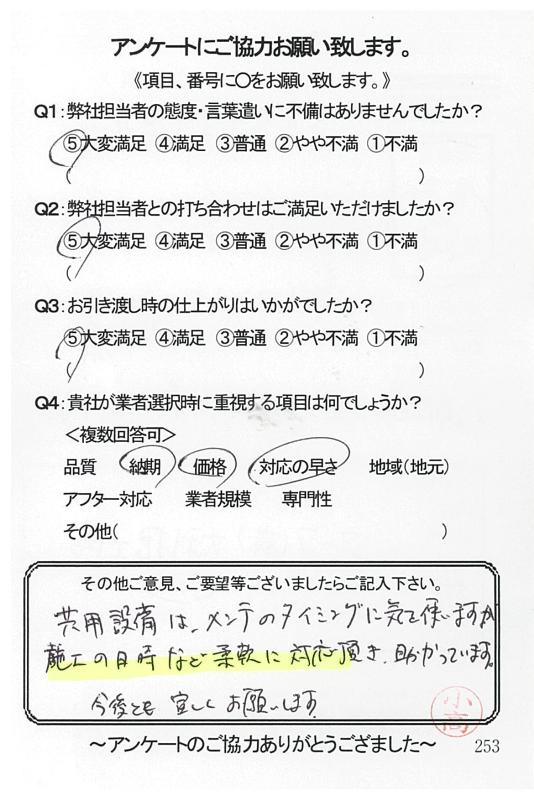 アンケートにご協力お願い致します。
《項目、番号に〇をお願い致します。》
Q1：弊社担当者の態度・言葉遣いに不備はありませんでしたか？
⑤大変満足 ④満足 ③普通 ②やや不満 ①不満
( )
Q2：弊社担当者との打ち合わせはご満足いただけましたか？
⑤大変満足 ④満足 ③普通 ②やや不満 ①不満
( )
Q3：お引き渡し時の仕上がりはいかがでしたか？
⑤大変満足 ④満足 ③普通 ②やや不満 ①不満
( )
Q4：貴社が業者選択時に重視する項目は何でしょうか？
＜複数回答可＞
品質 納期 価格 対応の早さ 地域（地元）
アフター対応 業者規模 専門性
その他( )
その他ご意見、ご要望等ございましたらご記入下さい。
共用設備は、メンテのタイミングに気を使いますが
施工の日時など柔軟に対応頂き、助かっています。
今後とも宜しくお願いします
小高
～アンケートのご協力ありがとうござました～ 253